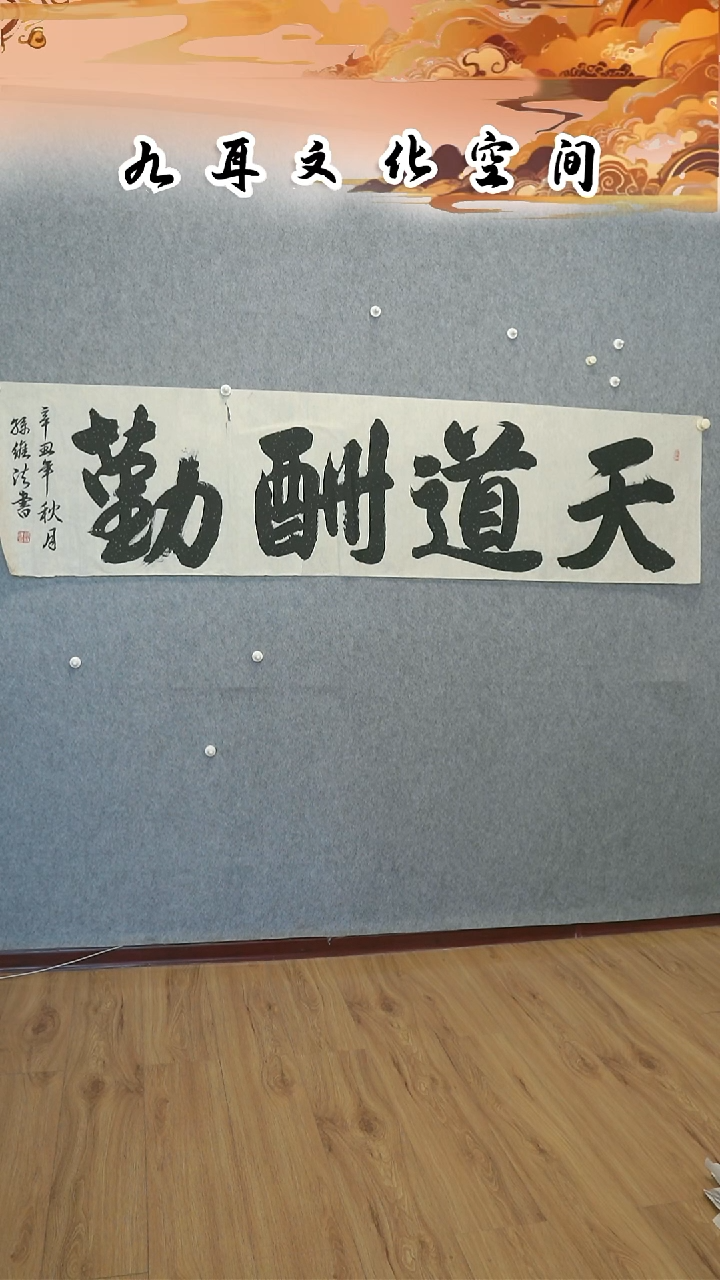 九耳文化空间
天道酬勤
辛丑年秋月
孫維法書